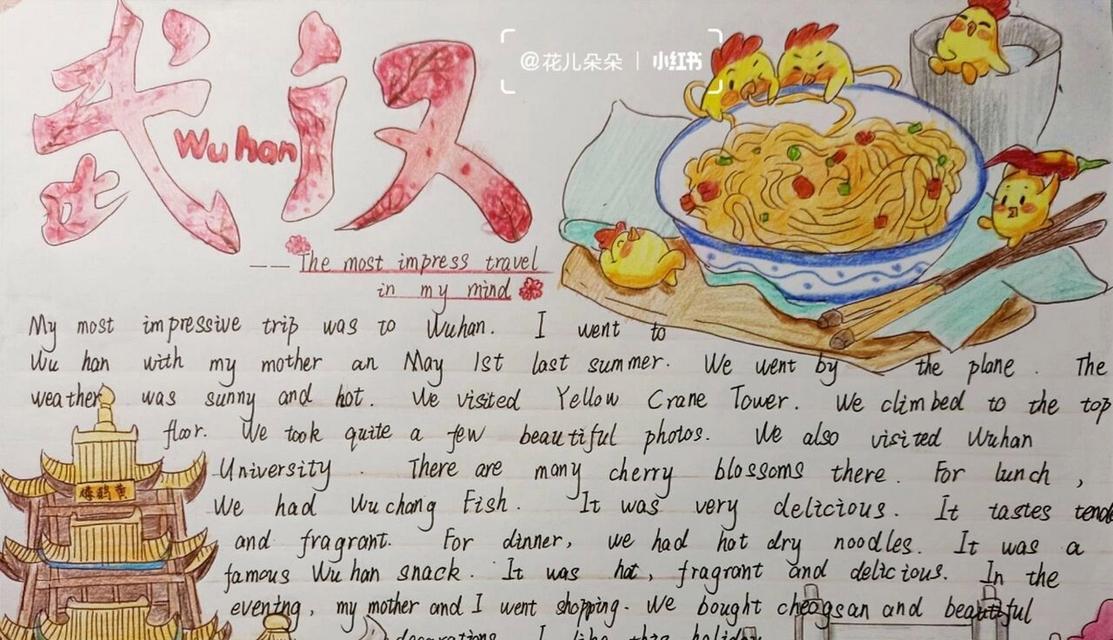 武汉
Wuhan
@花儿朵朵 | 小红书
——The most impress travel
in my mind
My most impressive trip was to Wuhan. I went to
Wu han with my mother an May 1st last summer. We went by the plane. The
weather was sunny and hot. We visited Yellow Crane Tower. We climbed to the top
floor. We took quite a few beautiful photos. We also visited Wuhan
University. There are many cherry blossoms there. For lunch,
We had Wuchang Fish. It was very delicious. It tastes
and fragrant. For dinner, we had hot dry noodles. It was a
famous Wuhan snack. It was hot, fragrant and delicious. In the
evening, my mother and I went shopping. We bought and beautiful
decorations. I like this holiday.
黄鹤楼